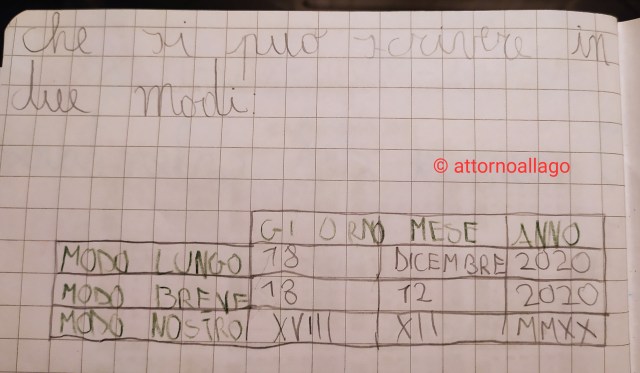 che si può scrivere in
due modi:
© attornoallago
GIORNO MESE ANNO
MODO LUNGO 18 DICEMBRE 2020
MODO BREVE 18 12 2020
MODO NOSTRO XVIII XII MMXX